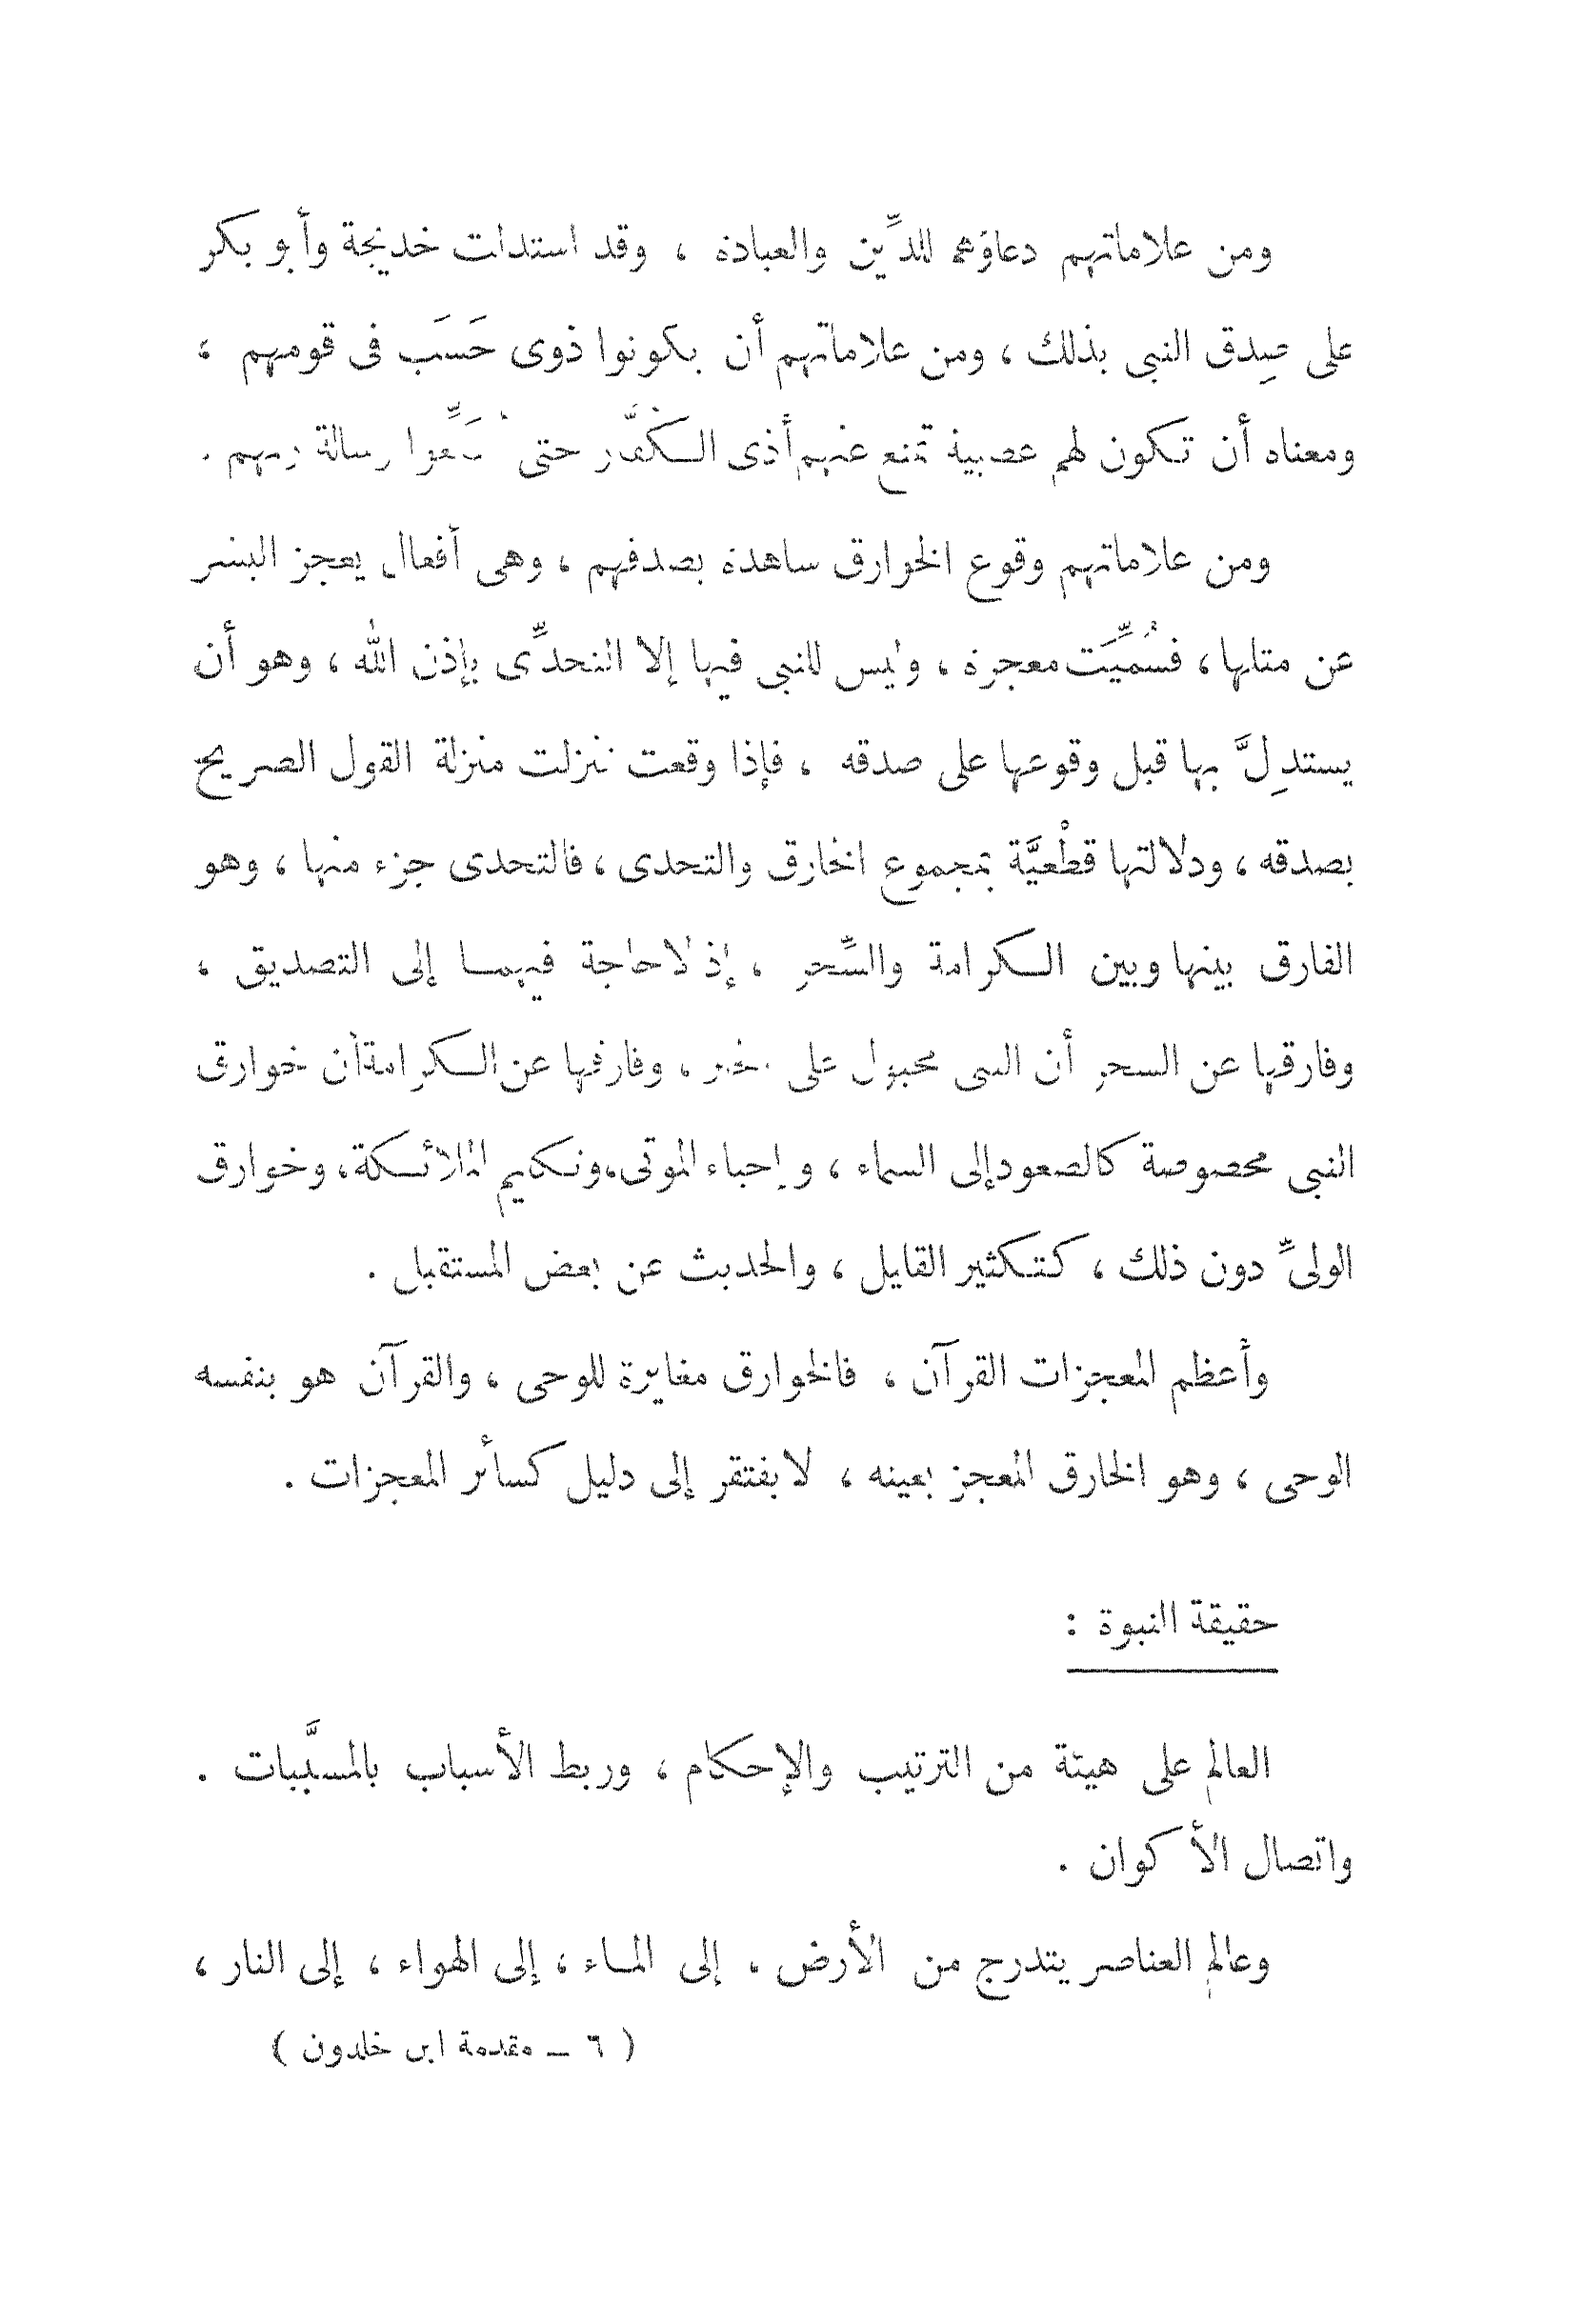 ومن علاماتهم دعاؤهم للدِّين والعبادة ، وقد استدلت خديجة وأبو بكر
على صِدق النبى بذلك ، ومن علاماتهم أن يكونوا ذوى حَسَب فى قومهم ،
ومعناه أن تكون لهم عصبية تمنع عنهم أذى الكفَّار حتى يُبَلِّغوا رسالة ربهم .
ومن علاماتهم وقوع الخوارق شاهدة بصدقهم ، وهى أفعال يعجز البشر
عن مثلها ، فسُمِّيَت معجزة ، وليس للنبى فيها إلا التحدِّى بإذن الله ، وهو أن
يستدِلَّ بها قبل وقوعها على صدقه ، فإذا وقعت تنزلت منزلة القول الصريح
بصدقه ، ودلالتها قطْعيَّة بمجموع الخارق والتحدى ، فالتحدى جزء منها ، وهو
الفارق بينها وبين الكرامة والسِّحر ، إذ لا حاجة فيهما إلى التصديق ،
وفارقها عن السحر أن النبى مجبول على الخير ، وفارقها عن الكرامة أن خوارق
النبى مخصوصة كالصعود إلى السماء ، وإحياء الموتى ، وتكليم الملائكة ، وخوارق
الولىِّ دون ذلك ، كتكثير القليل ، والحديث عن بعض المستقبل .
وأعظم المعجزات القرآن ، فالخوارق مغايرة للوحى ، والقرآن هو بنفسه
الوحى ، وهو الخارق المعجز بعينه ، لا يفتقر إلى دليل كسائر المعجزات .
حقيقة النبوة :
العالم على هيئة من الترتيب والإحكام ، وربط الأسباب بالمسبَّبات .
واتصال الأكوان .
وعالم العناصر يتدرج من الأرض . إلى الماء ، إلى الهواء ، إلى النار ،
( ٦ ــ مقدمة ابن خلدون )